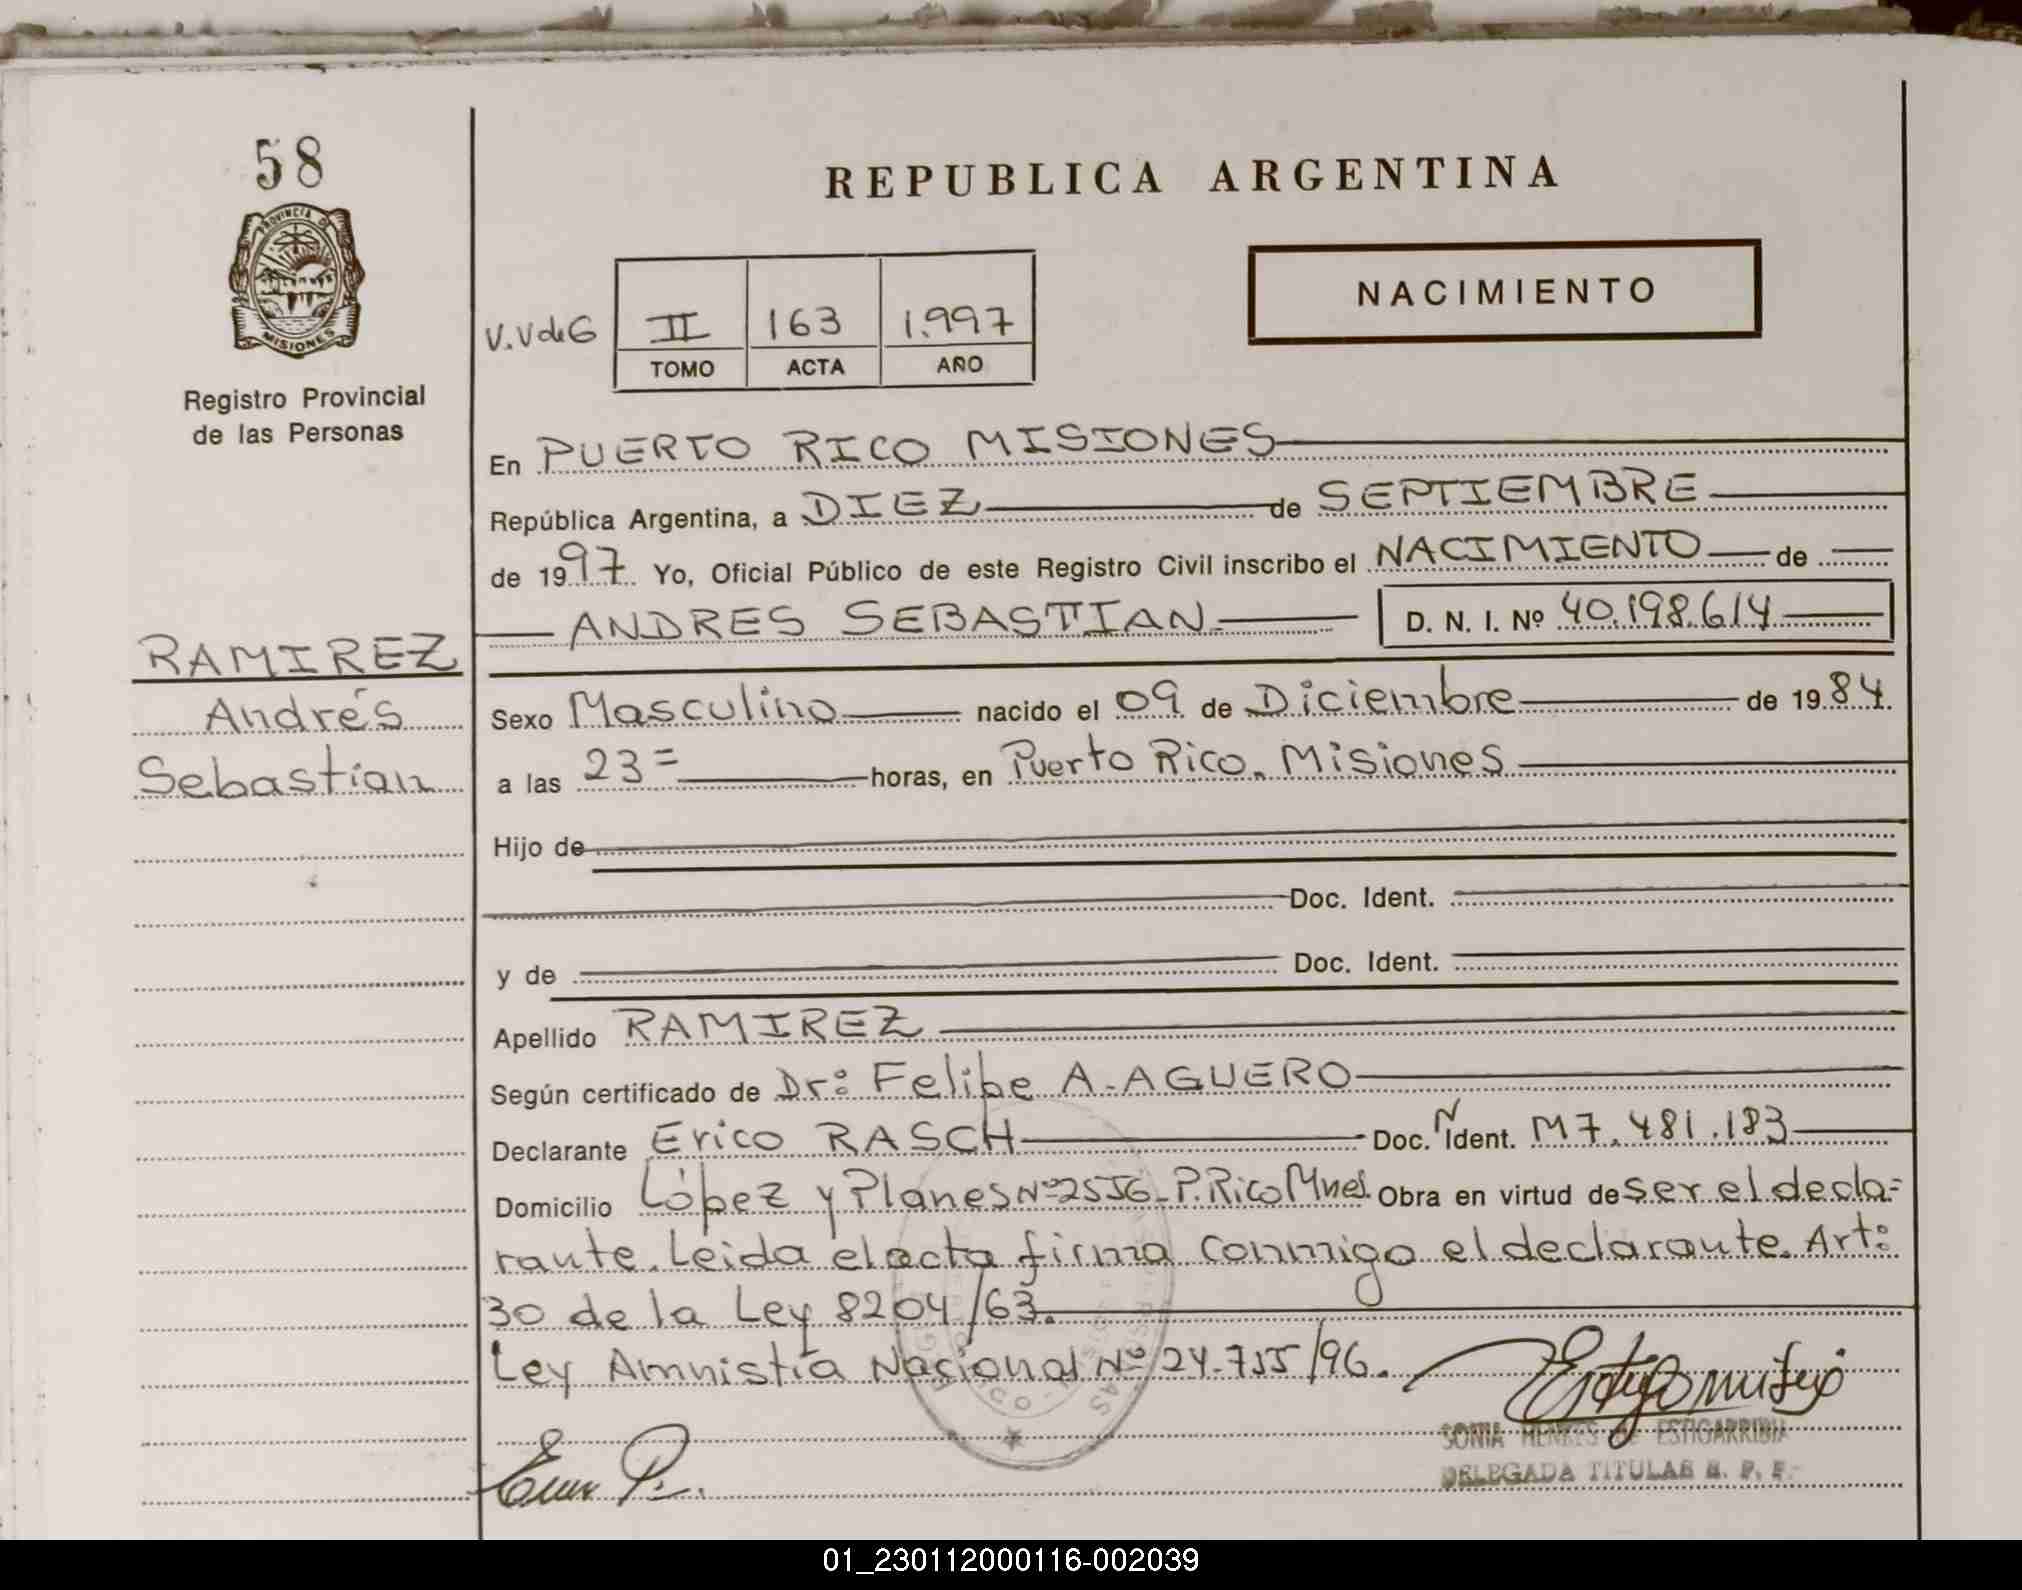 58
REPUBLICA ARGENTINA
PROVINCIA DE
MISIONES
NACIMIENTO
V.V de G II 163 1.997
TOMO ACTA AÑO
Registro Provincial
de las Personas
En PUERTO RICO MISIONES
República Argentina, a DIEZ de SEPTIEMBRE
de 1997 Yo, Oficial Público de este Registro Civil inscribo el NACIMIENTO de
ANDRES SEBASTIAN D. N. I. Nº 40.198.614
RAMIREZ
Andrés
Sebastian
Sexo Masculino nacido el 09 de Diciembre de 1984.
a las 23= horas, en Puerto Rico. Misiones
Hijo de
Doc. Ident.
y de Doc. Ident.
Apellido RAMIREZ
Según certificado de Dr: Felipe A. AGUERO
Declarante Erico RASCH Doc. Ñ Ident. M7.481.183
Domicilio López y Planes Nº 2556-P.Rico Mnes. Obra en virtud de ser el decla-
rante. Leida el acta firma conmigo el declarante. Art:
30 de la Ley 8204/63.
Ley Amnistía Nacional Nº 24.755/96.
SONIA MENKES de ESTIGARRIBIA
DELEGADA TITULAR R. P. P.
01_230112000116-002039